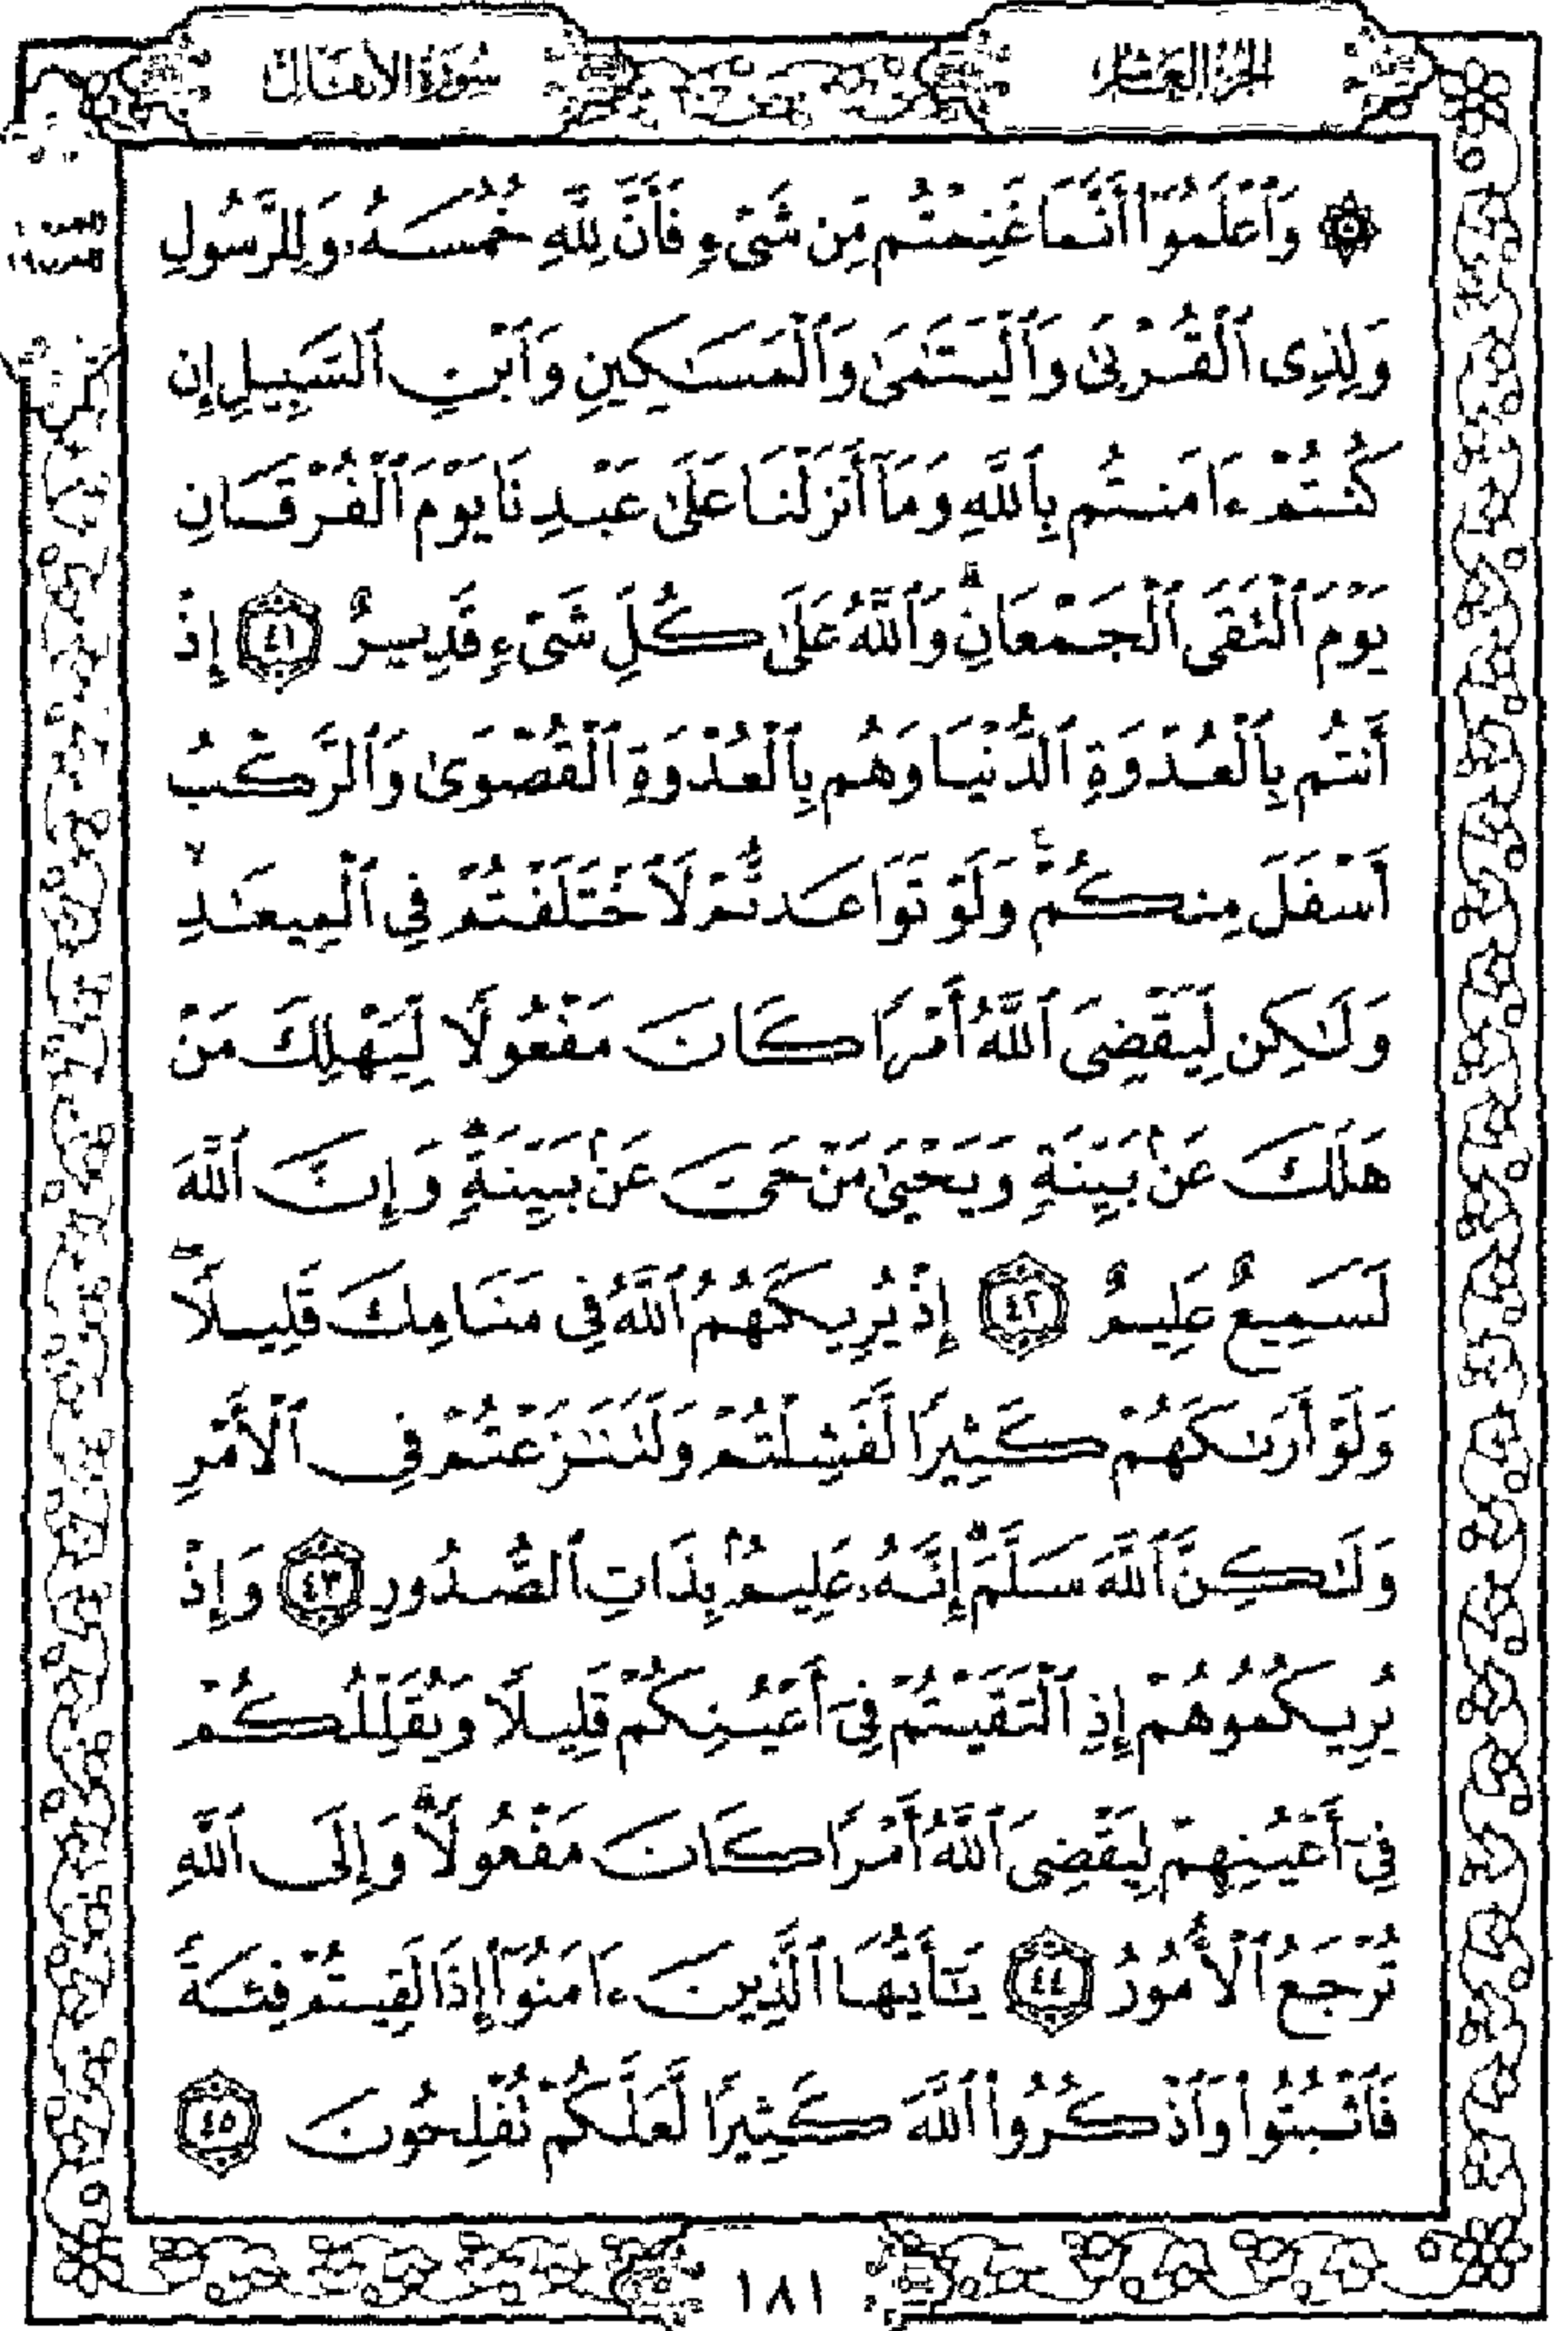 الجزء العاشر
سورة الأنفال
۞ وَٱعْلَمُوٓا۟ أَنَّمَا غَنِمْتُم مِّن شَىْءٍ فَأَنَّ لِلَّهِ خُمُسَهُۥ وَلِلرَّسُولِ
وَلِذِى ٱلْقُرْبَىٰ وَٱلْيَتَـٰمَىٰ وَٱلْمَسَـٰكِينِ وَٱبْنِ ٱلسَّبِيلِ إِن
كُنتُمْ ءَامَنتُم بِٱللَّهِ وَمَآ أَنزَلْنَا عَلَىٰ عَبْدِنَا يَوْمَ ٱلْفُرْقَانِ
يَوْمَ ٱلْتَقَى ٱلْجَمْعَانِ ۗ وَٱللَّهُ عَلَىٰ كُلِّ شَىْءٍ قَدِيرٌ ٤١ إِذْ
أَنتُم بِٱلْعُدْوَةِ ٱلدُّنْيَا وَهُم بِٱلْعُدْوَةِ ٱلْقُصْوَىٰ وَٱلرَّكْبُ
أَسْفَلَ مِنكُمْ ۚ وَلَوْ تَوَاعَدتُّمْ لَٱخْتَلَفْتُمْ فِى ٱلْمِيعَـٰدِ ۙ
وَلَـٰكِن لِّيَقْضِىَ ٱللَّهُ أَمْرًا كَانَ مَفْعُولًا لِّيَهْلِكَ مَنْ
هَلَكَ عَنۢ بَيِّنَةٍ وَيَحْيَىٰ مَنْ حَىَّ عَنۢ بَيِّنَةٍ ۗ وَإِنَّ ٱللَّهَ
لَسَمِيعٌ عَلِيمٌ ٤٢ إِذْ يُرِيكَهُمُ ٱللَّهُ فِى مَنَامِكَ قَلِيلًا ۖ
وَلَوْ أَرَىٰكَهُمْ كَثِيرًا لَّفَشِلْتُمْ وَلَتَنَـٰزَعْتُمْ فِى ٱلْأَمْرِ
وَلَـٰكِنَّ ٱللَّهَ سَلَّمَ ۗ إِنَّهُۥ عَلِيمٌۢ بِذَاتِ ٱلصُّدُورِ ٤٣ وَإِذْ
يُرِيكُمُوهُمْ إِذِ ٱلْتَقَيْتُمْ فِىٓ أَعْيُنِكُمْ قَلِيلًا وَيُقَلِّلُكُمْ
فِىٓ أَعْيُنِهِمْ لِيَقْضِىَ ٱللَّهُ أَمْرًا كَانَ مَفْعُولًا ۗ وَإِلَى ٱللَّهِ
تُرْجَعُ ٱلْأُمُورُ ٤٤ يَـٰٓأَيُّهَا ٱلَّذِينَ ءَامَنُوٓا۟ إِذَا لَقِيتُمْ فِئَةً
فَٱثْبُتُوا۟ وَٱذْكُرُوا۟ ٱللَّهَ كَثِيرًا لَّعَلَّكُمْ تُفْلِحُونَ ٤٥
١٨١